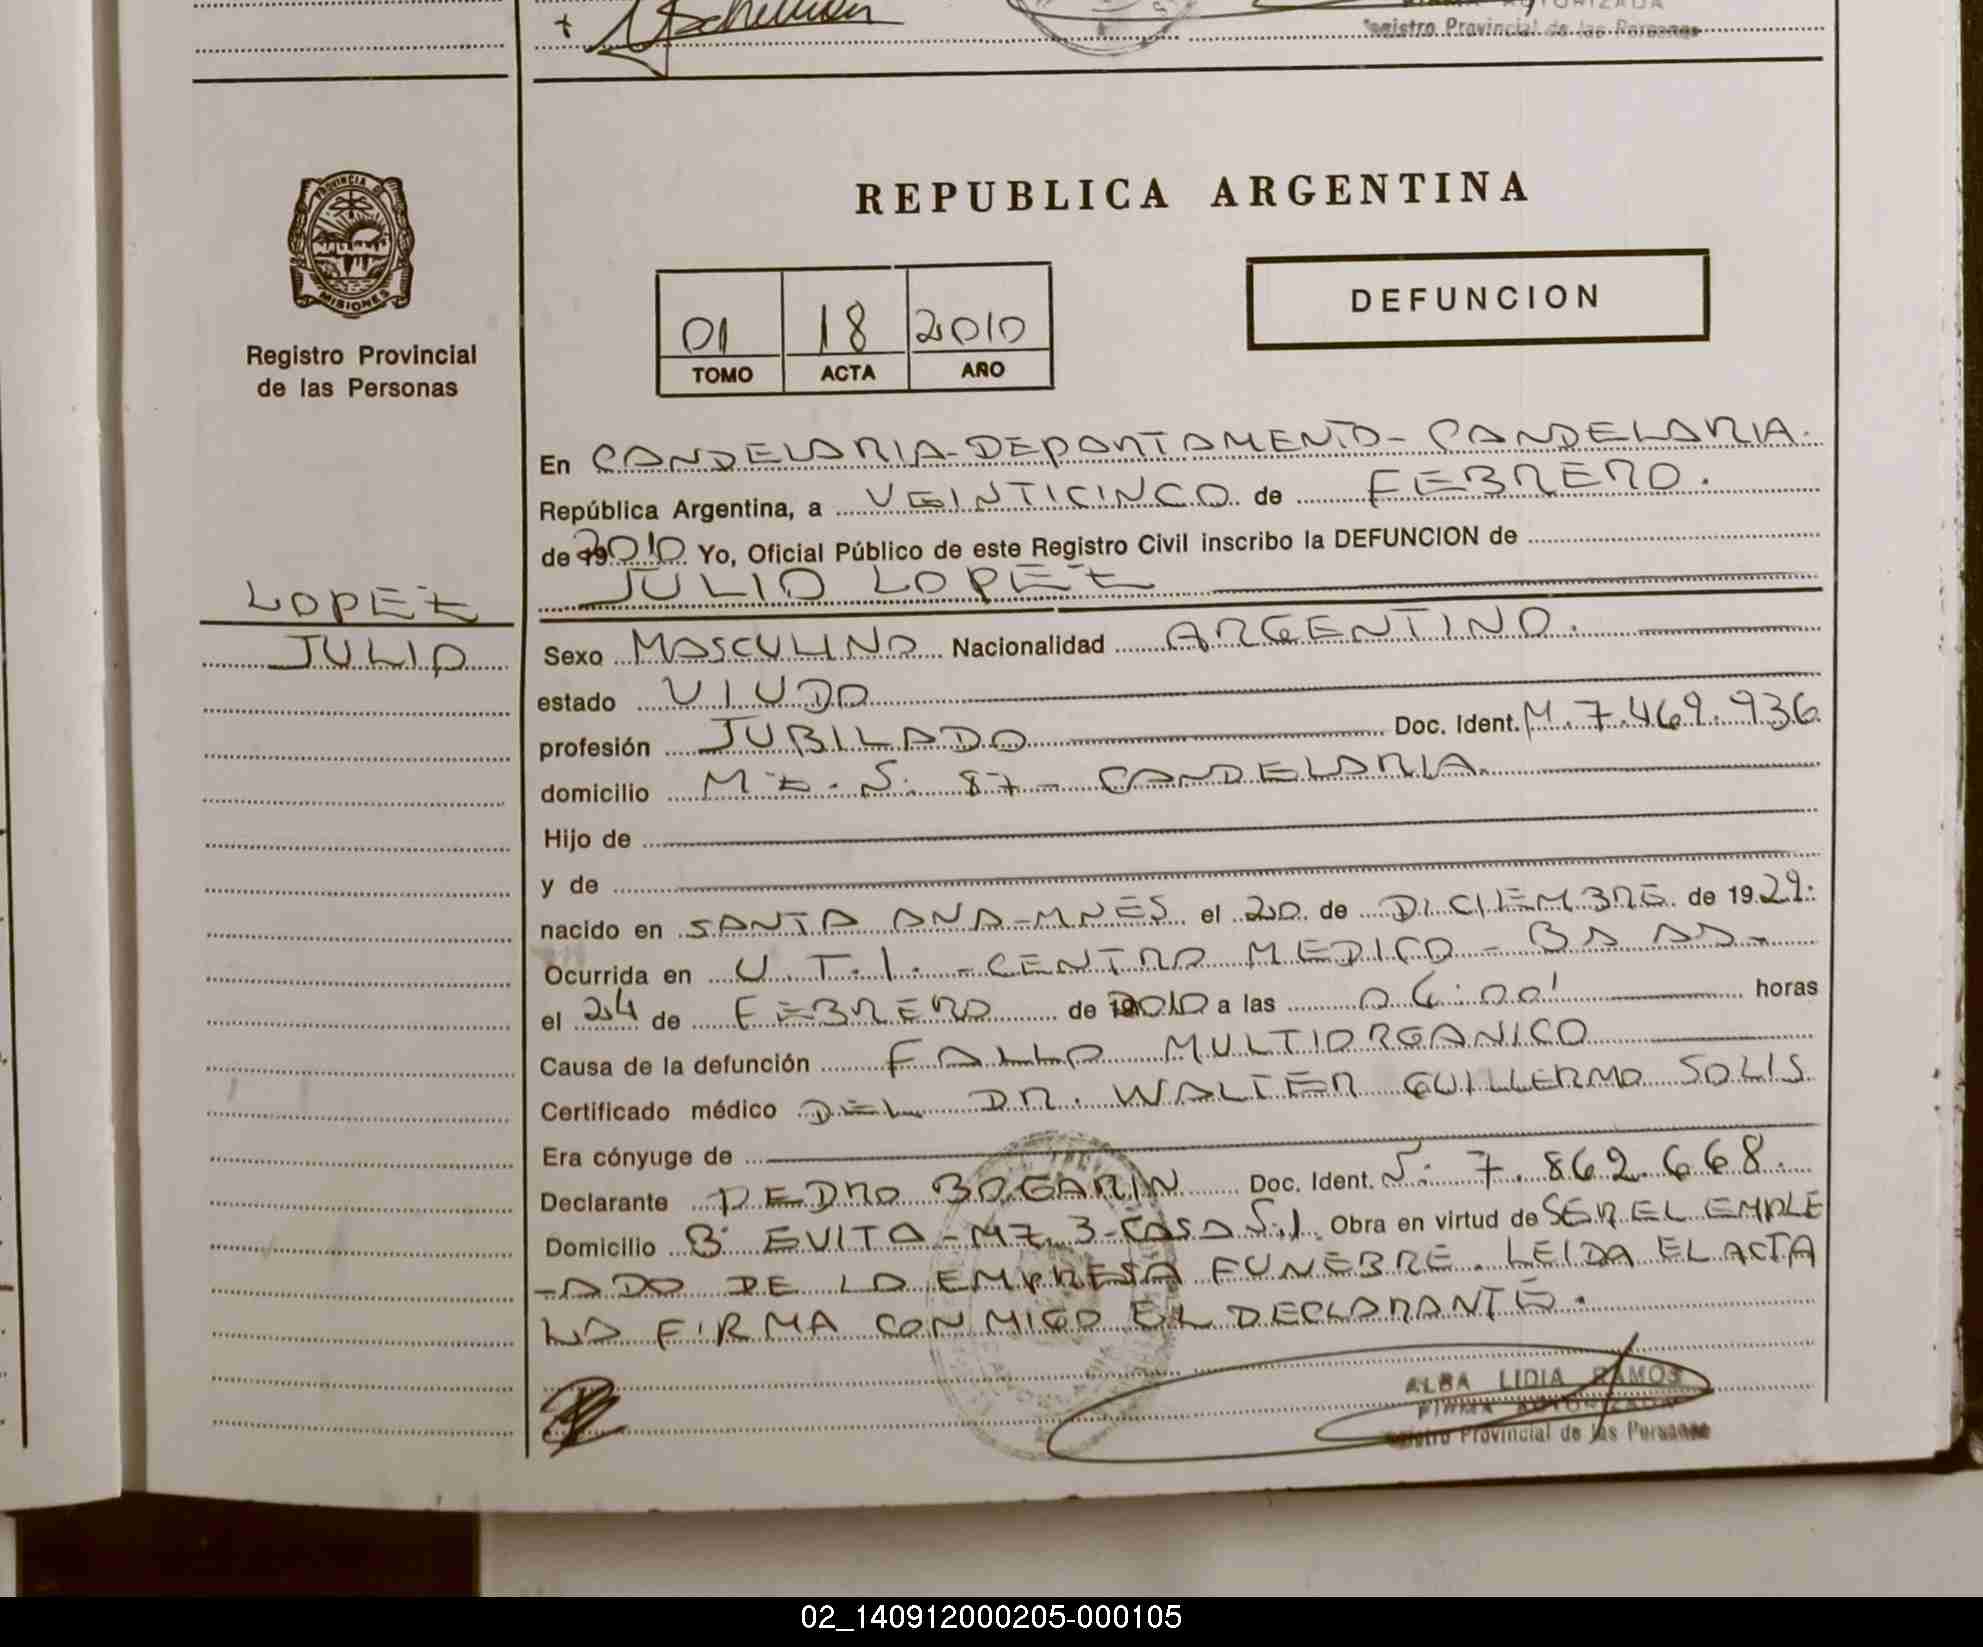 Registro Provincial de las Personas
PROVINCIA DE
MISIONES
Registro Provincial
de las Personas
REPUBLICA ARGENTINA
DEFUNCION
01 18 2010
TOMO ACTA AÑO
En CANDELARIA-DEPARTAMENTO-CANDELARIA.
República Argentina, a VEINTICINCO de FEBRERO.
de 2010 Yo, Oficial Público de este Registro Civil inscribo la DEFUNCION de
JULIO LOPEZ
LOPEZ
JULIO
Sexo MASCULINO Nacionalidad ARGENTINO.
estado VIUDO
profesión JUBILADO Doc. Ident. M.7.469.936
domicilio MZ.S. 87- CANDELARIA.
Hijo de
y de
nacido en SANTA ANA-MNES el 20 de DICIEMBRE de 1929.
Ocurrida en U.T.I.-CENTRO MEDICO-
el 24 de FEBRERO de 2010 a las horas
Causa de la defunción FALLO MULTIORGANICO
Certificado médico DEL DR. WALTER GUILLERMO SOLIS
Era cónyuge de
Declarante PEDRO BOGARIN Doc. Ident. 7.862.668.
Domicilio Bº EVITA-MZ.3-CASA Obra en virtud de SER EL EMPLE
-ADO DE LA EMPRESA FUNEBRE. LEIDA EL ACTA
LA FIRMA CONMIGO EL DECLARANTE.
ALBA LIDIA RAMOS
FIRMA AUTORIZADA
Registro Provincial de las Personas
02_140912000205-000105